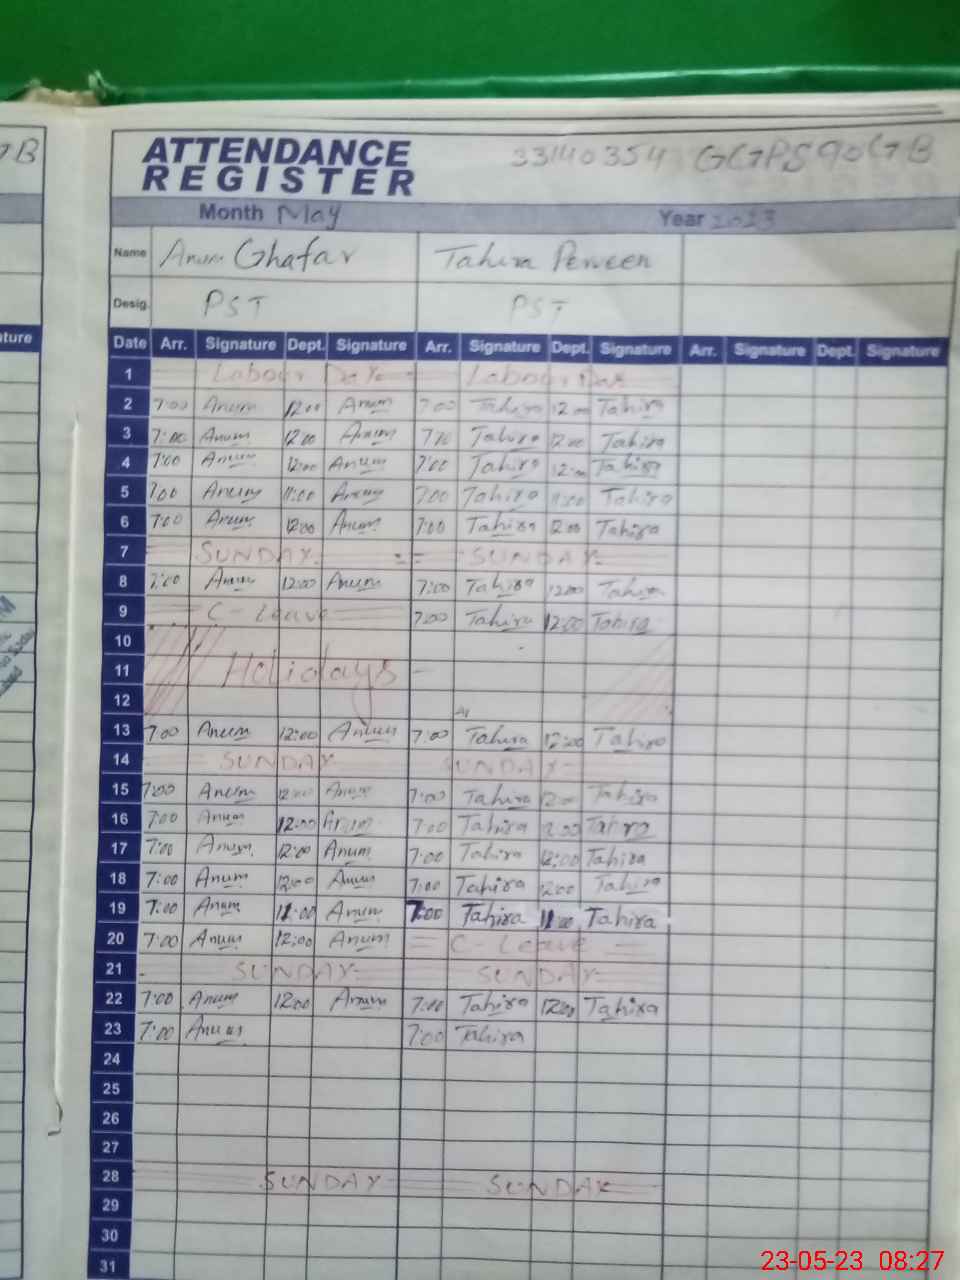 ATTENDANCE 33140354 GGPS 90 GB
REGISTER
Month May Year 2023
Name Anum Ghafar Tahira Perveen
Desig. PST PST
Date Arr. Signature Dept. Signature Arr. Signature Dept. Signature Arr. Signature Dept. Signature
1 Labour Day Labour Day
2 7:00 Anum 12:00 Anum 7:00 Tahira 12:00 Tahira
3 7:00 Anum 12:00 Anum 7:00 Tahira 12:00 Tahira
4 7:00 Anum 12:00 Anum 7:00 Tahira 12:00 Tahira
5 7:00 Anum 11:00 Anum 7:00 Tahira 11:00 Tahira
6 7:00 Anum 12:00 Anum 7:00 Tahira 12:00 Tahira
7 SUNDAY SUNDAY
8 7:00 Anum 12:00 Anum 7:00 Tahira 12:00 Tahira
9 C-Leave 7:00 Tahira 12:00 Tahira
10
11 Holidays
12
13 7:00 Anum 12:00 Anum 7:00 Tahira 12:00 Tahira
14 SUNDAY SUNDAY
15 7:00 Anum 12:00 Anum 7:00 Tahira 12:00 Tahira
16 7:00 Anum 12:00 Anum 7:00 Tahira 12:00 Tahira
17 7:00 Anum 12:00 Anum 7:00 Tahira 12:00 Tahira
18 7:00 Anum 12:00 Anum 7:00 Tahira 12:00 Tahira
19 7:00 Anum 11:00 Anum 7:00 Tahira 11:00 Tahira
20 7:00 Anum 12:00 Anum C-Leave
21 SUNDAY SUNDAY
22 7:00 Anum 12:00 Anum 7:00 Tahira 12:00 Tahira
23 7:00 Anum 7:00 Tahira
24
25
26
27
28 SUNDAY SUNDAY
29
30
31
23-05-23 08:27